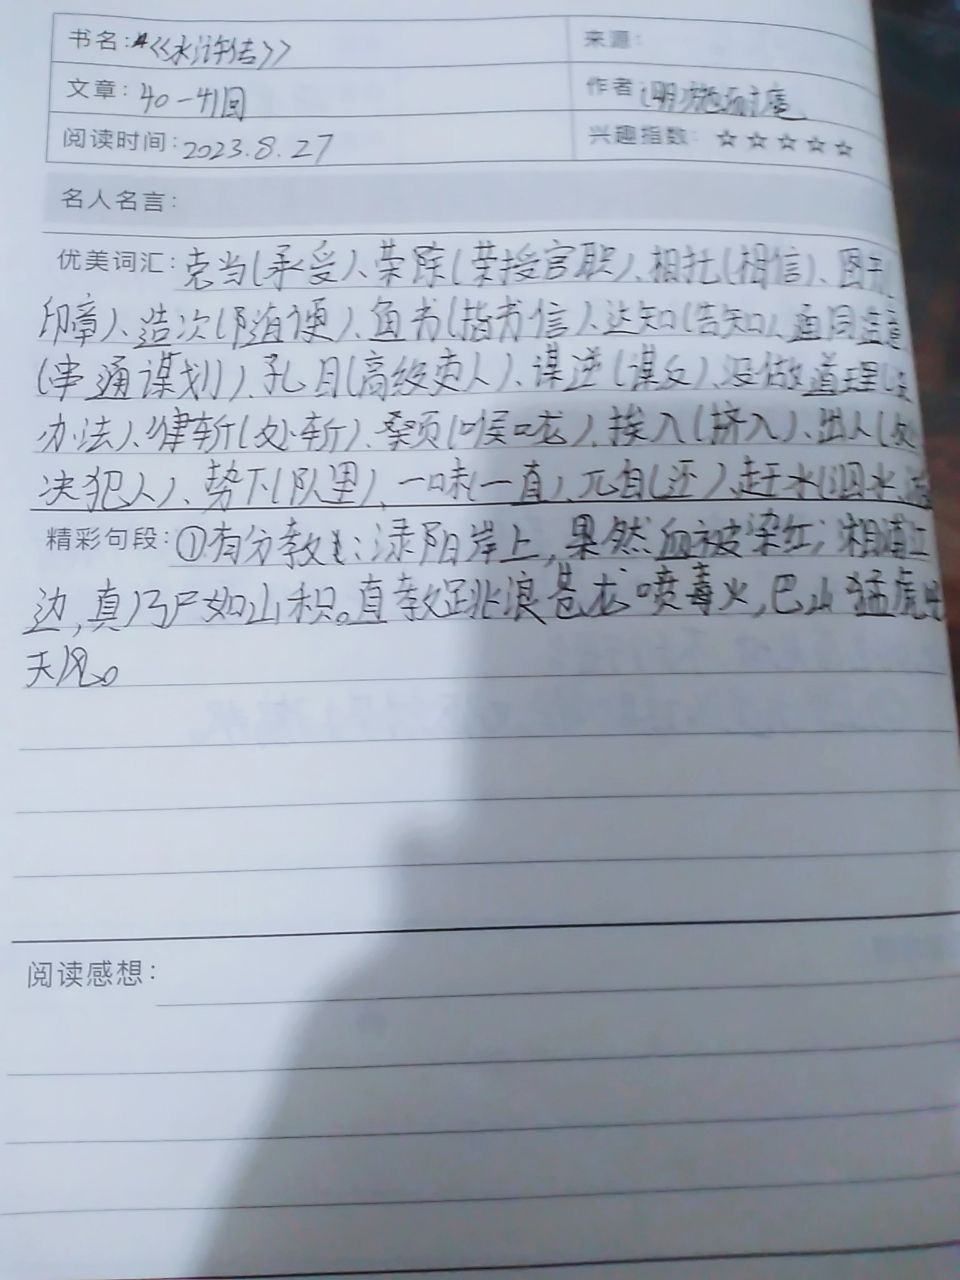 书名:《水浒传》
来源:
文章: 40-41回
作者 (明)施耐庵
阅读时间: 2023.8.27
兴趣指数: ☆☆☆☆☆
名人名言:
优美词汇: 当(承受)、荣除(荣授官职)、相托(相信)、图
印章)、造次(随便)、鱼书(指书信)、达知(告知)、通同造意
(串通谋划)、孔目(高级吏人)、谋逆(谋反)、没做道理(没
办法)、律斩(处斩)、桑页(喉咙)、挨入(挤入)、出人(处
决犯人)、势下(队里)、一味(一直)、兀自(还)、赶水(泅水
精彩句段: ①有分教:浔阳岸上,果然血被染红;湘浦江
边,真乃尸如山积。直教跳浪苍龙喷毒火,巴山猛虎吼
天风。
阅读感想: